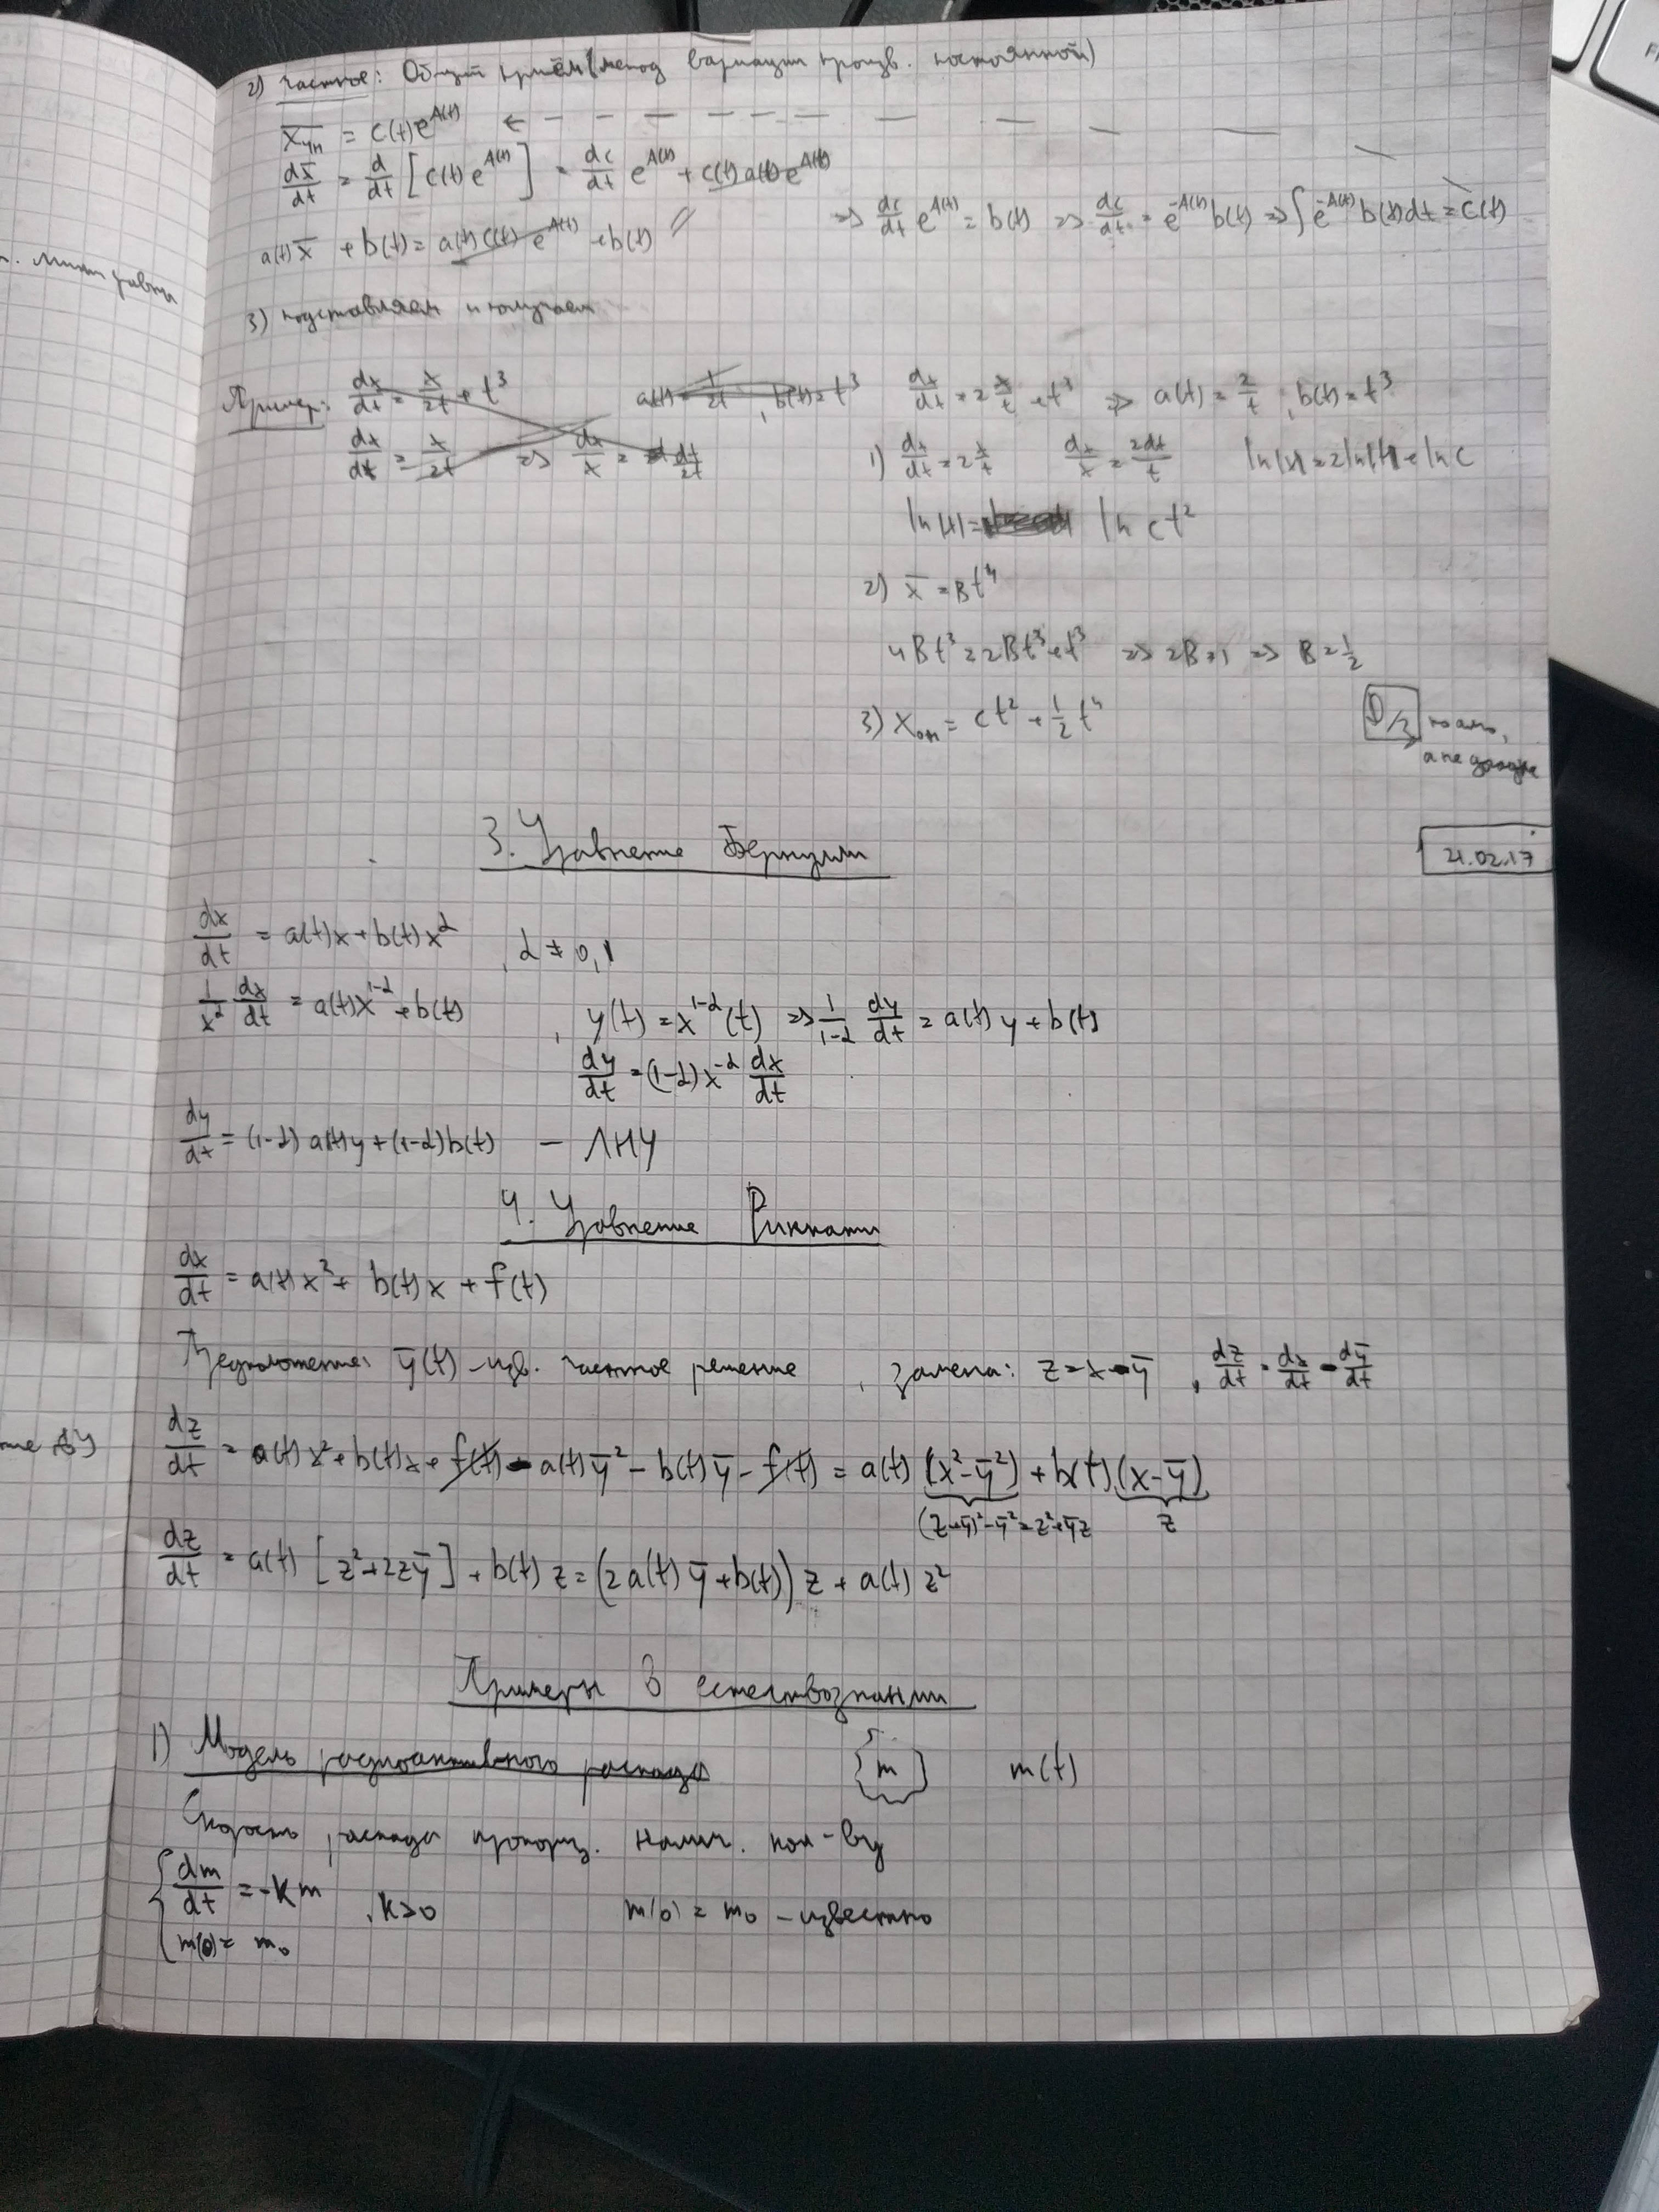 2) Частное: Общий приём (метод вариации произв. постоянной)
x̄чн = c(t)e^A(t) ← – – – – – – –
dx̄/dt = d/dt [c(t)e^A(t)] = dc/dt e^A(t) + c(t)a(t)e^A(t)
a(t)x̄ + b(t) = a(t)c(t)e^A(t) + b(t) // => dc/dt e^A(t) = b(t) => dc/dt = e^-A(t) b(t) => ∫e^-A(t) b(t)dt = c(t)
3) подставляем и получаем
Пример: dx/dt = x/2t + t³ a(t) = 1/2t, b(t) = t³ dx/dt = 2x/t + t³ => a(t) = 2/t, b(t) = t³
dx/dt = x/2t => dx/x = dt/2t 1) dx/dt = 2x/t dx/x = 2dt/t ln|x| = 2ln|t| + ln c
ln|x| = ln ct²
2) x̄ = Bt⁴
4Bt³ = 2Bt³ + t³ => 2B = 1 => B = 1/2
3) xон = ct² + 1/2 t⁴
D/z
3. Уравнение Бернулли
21.02.17
dx/dt = a(t)x + b(t)x^α, α ≠ 0,1
1/x^α dx/dt = a(t)x^1-α + b(t), y(t) = x^1-α(t) => 1/1-α dy/dt = a(t)y + b(t)
dy/dt = (1-α)x^-α dx/dt
dy/dt = (1-α)a(t)y + (1-α)b(t) – ЛНУ
4. Уравнение Риккати
dx/dt = a(t)x² + b(t)x + f(t)
Предположение: ȳ(t) – изв. частное решение, замена: z = x - ȳ, dz/dt = dx/dt - dȳ/dt
dz/dt = a(t)x² + b(t)x + f(t) - a(t)ȳ² - b(t)ȳ - f(t) = a(t)(x² - ȳ²) + b(t)(x - ȳ)
(z+ȳ)² - ȳ² = z² + ȳz z
dz/dt = a(t)[z² + 2zȳ] + b(t)z = (2a(t)ȳ + b(t))z + a(t)z²
Примеры в естествознании
1) Модель радиоактивного распада {m} m(t)
Скорость распада пропорц. налич. кол-ву
{ dm/dt = -km, k>0 m(0) = m₀ – известно
m(0) = m₀